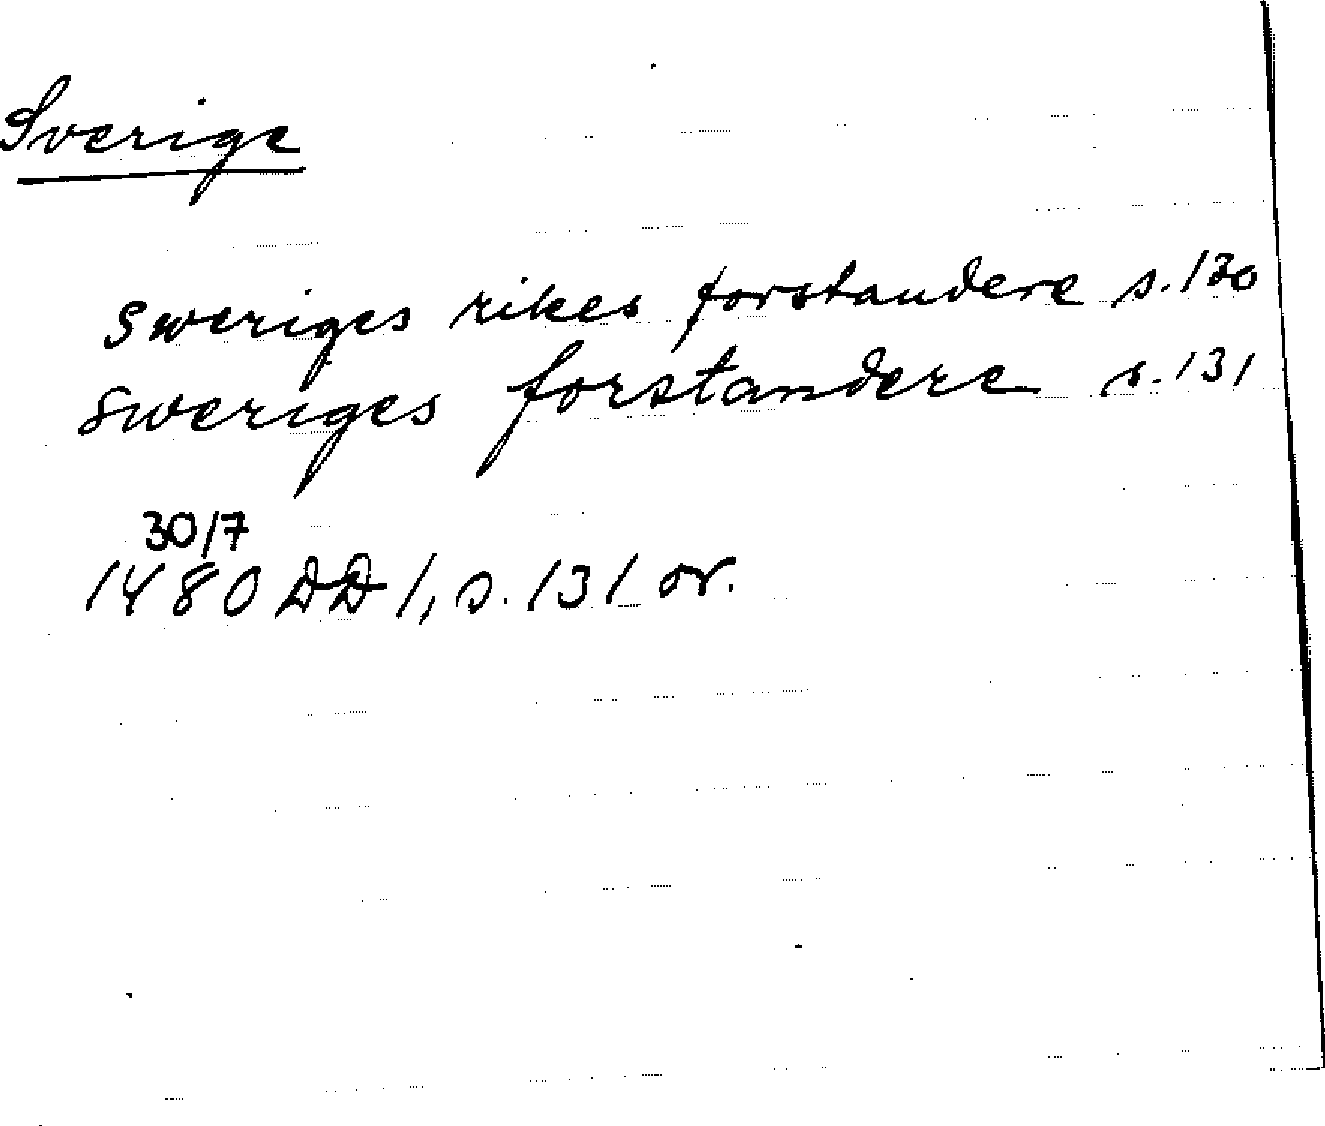 Sverige
Sweriges rikes forstandere s. 130
Sweriges forstandere s. 131
30/7
1480 DD 1, s. 131 or.